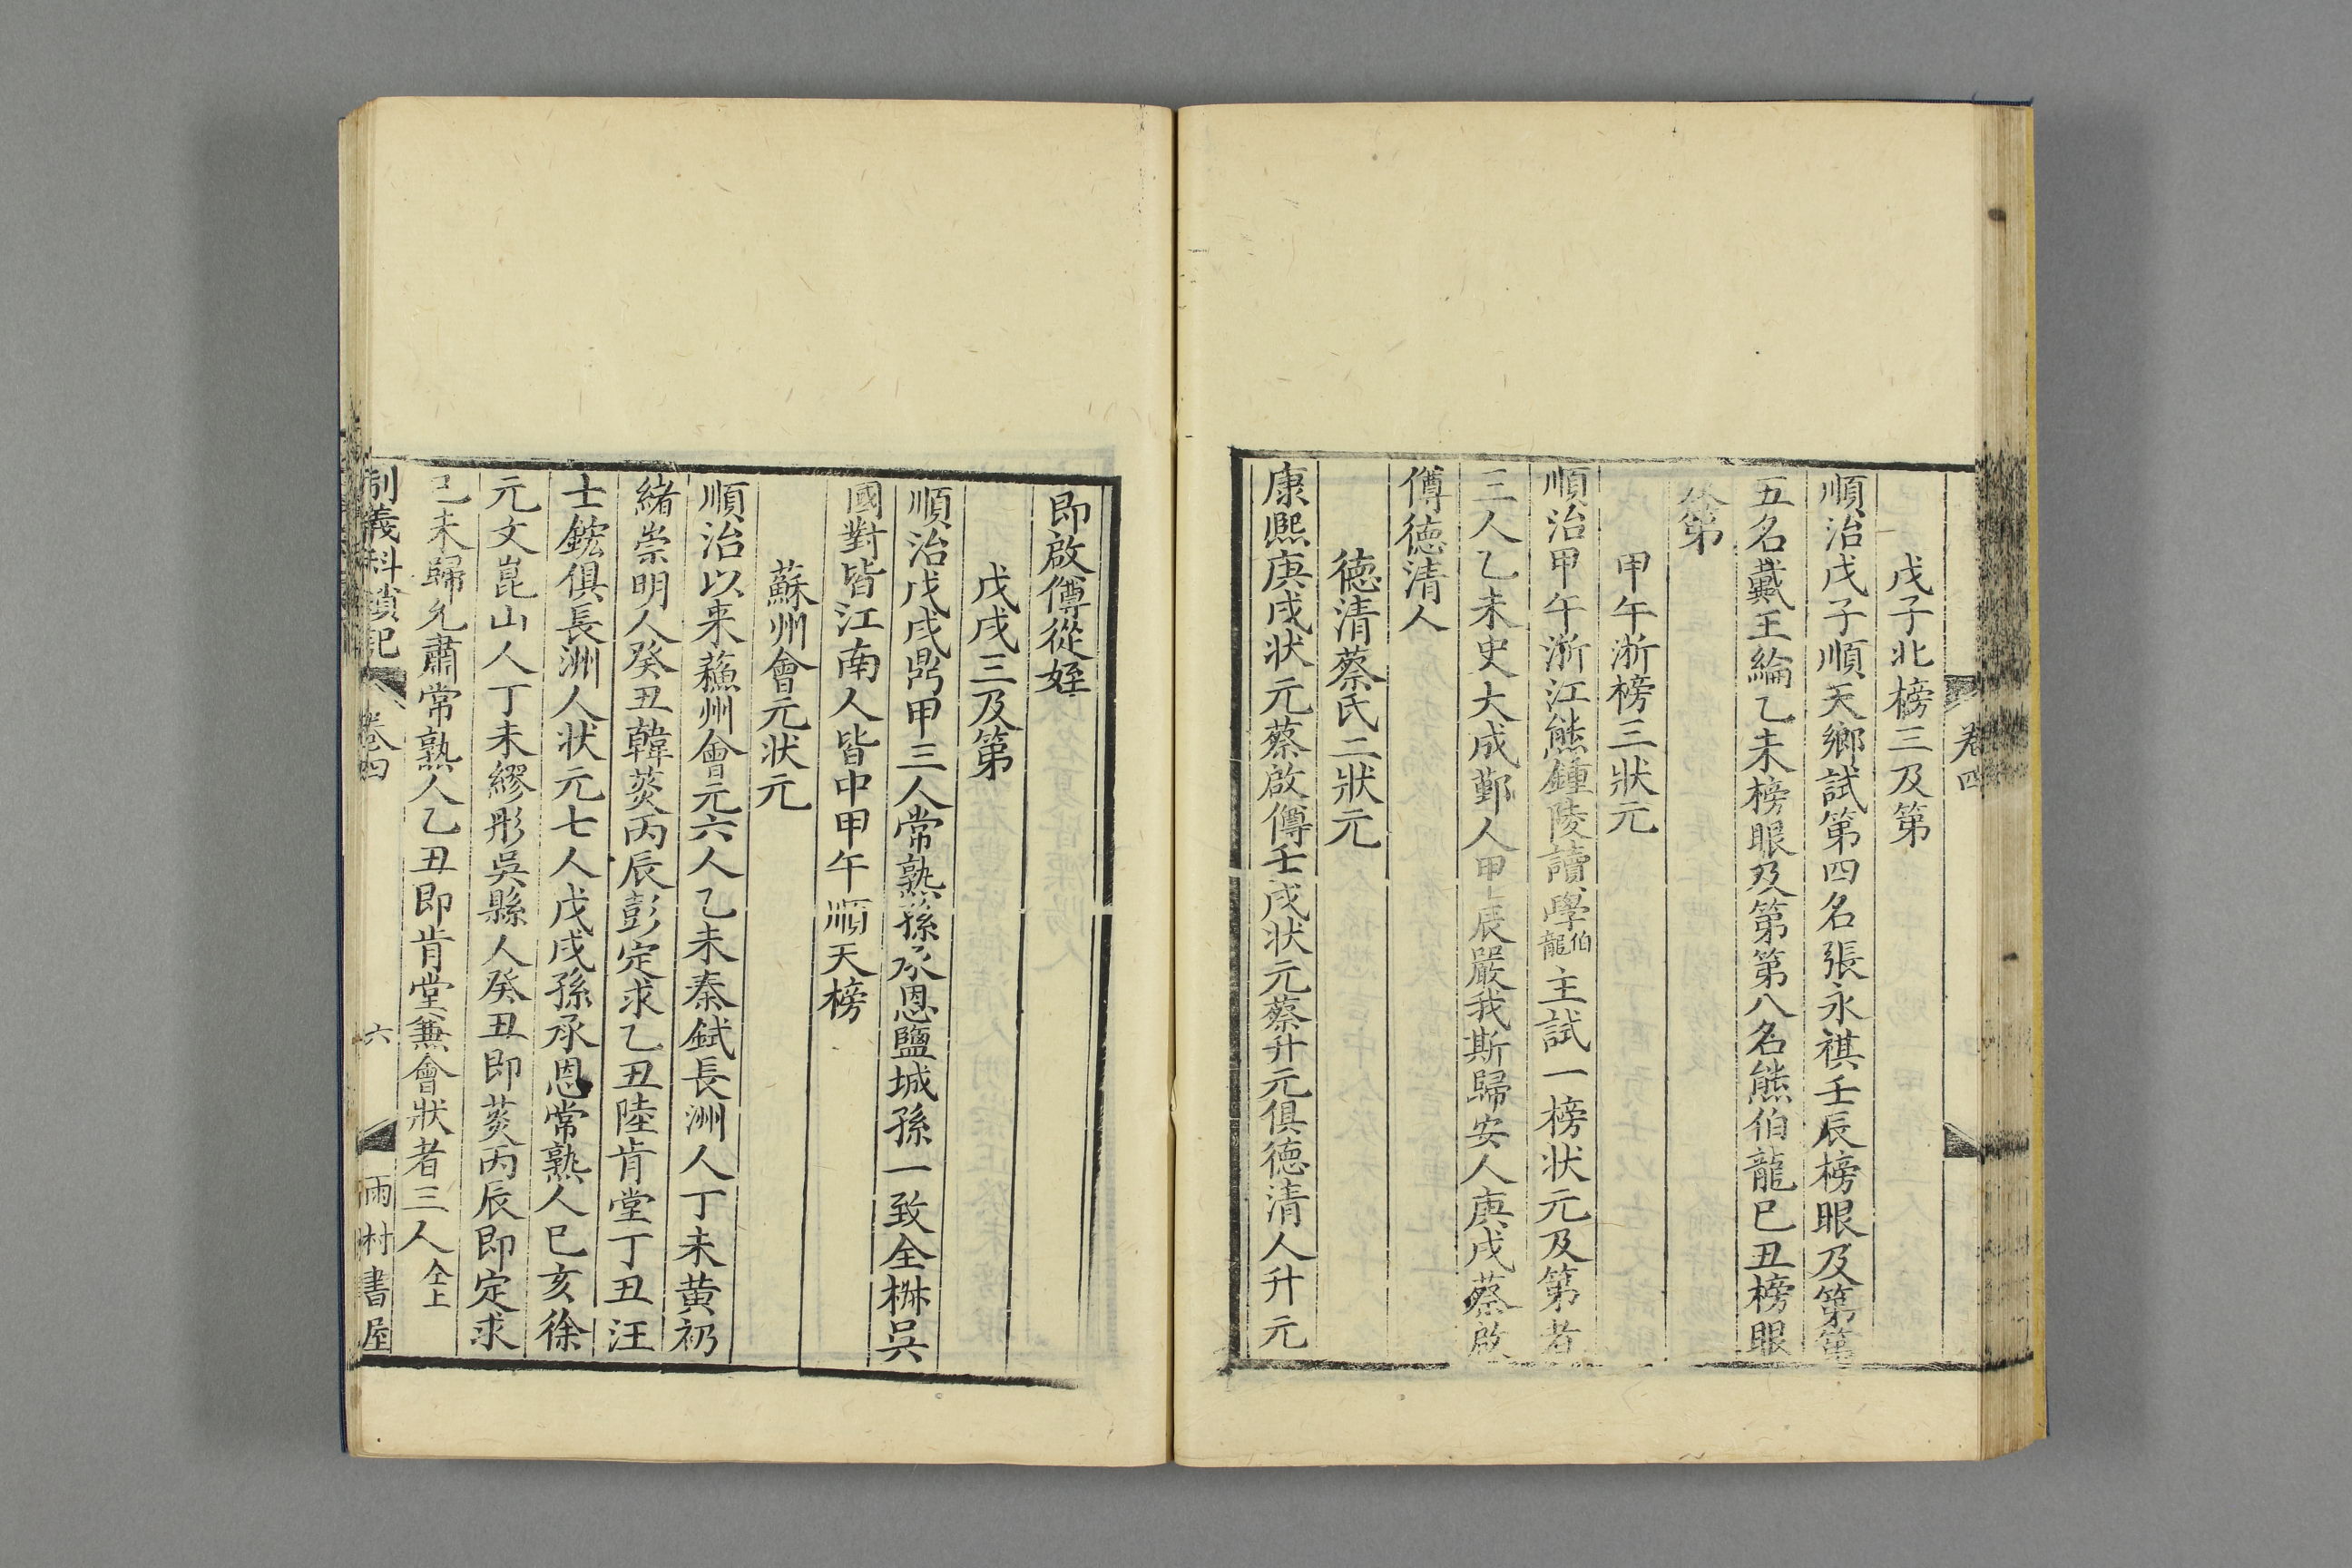 卷四
戊子北榜三及第
順治戊子順天鄉試第四名張永祺壬辰榜眼及第第
五名戴王綸乙未榜眼及第第八名熊伯龍巳丑榜眼
及第
甲午浙榜三狀元
順治甲午浙江熊鍾陵讀學伯龍主試一榜状元及第者
三人乙未史大成鄞人甲辰嚴我斯歸安人庚戌蔡啟
僔德清人
德清蔡氏二狀元
康熙庚戌状元蔡啟僔壬戌状元蔡升元俱德清人升元
即啟僔從姪
戊戌三及第
順治戊戌鼎甲三人常熟孫承恩鹽城孫一致全椒吳
國對皆江南人皆中甲午順天榜
蘇州會元状元
順治以来蘓州會元六人乙未秦鉽長洲人丁未黄礽
緒崇明人癸丑韓菼丙辰彭定求乙丑陸肯堂丁丑汪
士鋐俱長洲人状元七人戊戌孫承恩常熟人巳亥徐
元文崑山人丁未繆彤吳縣人癸丑即菼丙辰即定求
己未歸允肅常熟人乙丑即肯堂兼會狀者三人仝上
制義科瑣記 卷四 六 雨村書屋